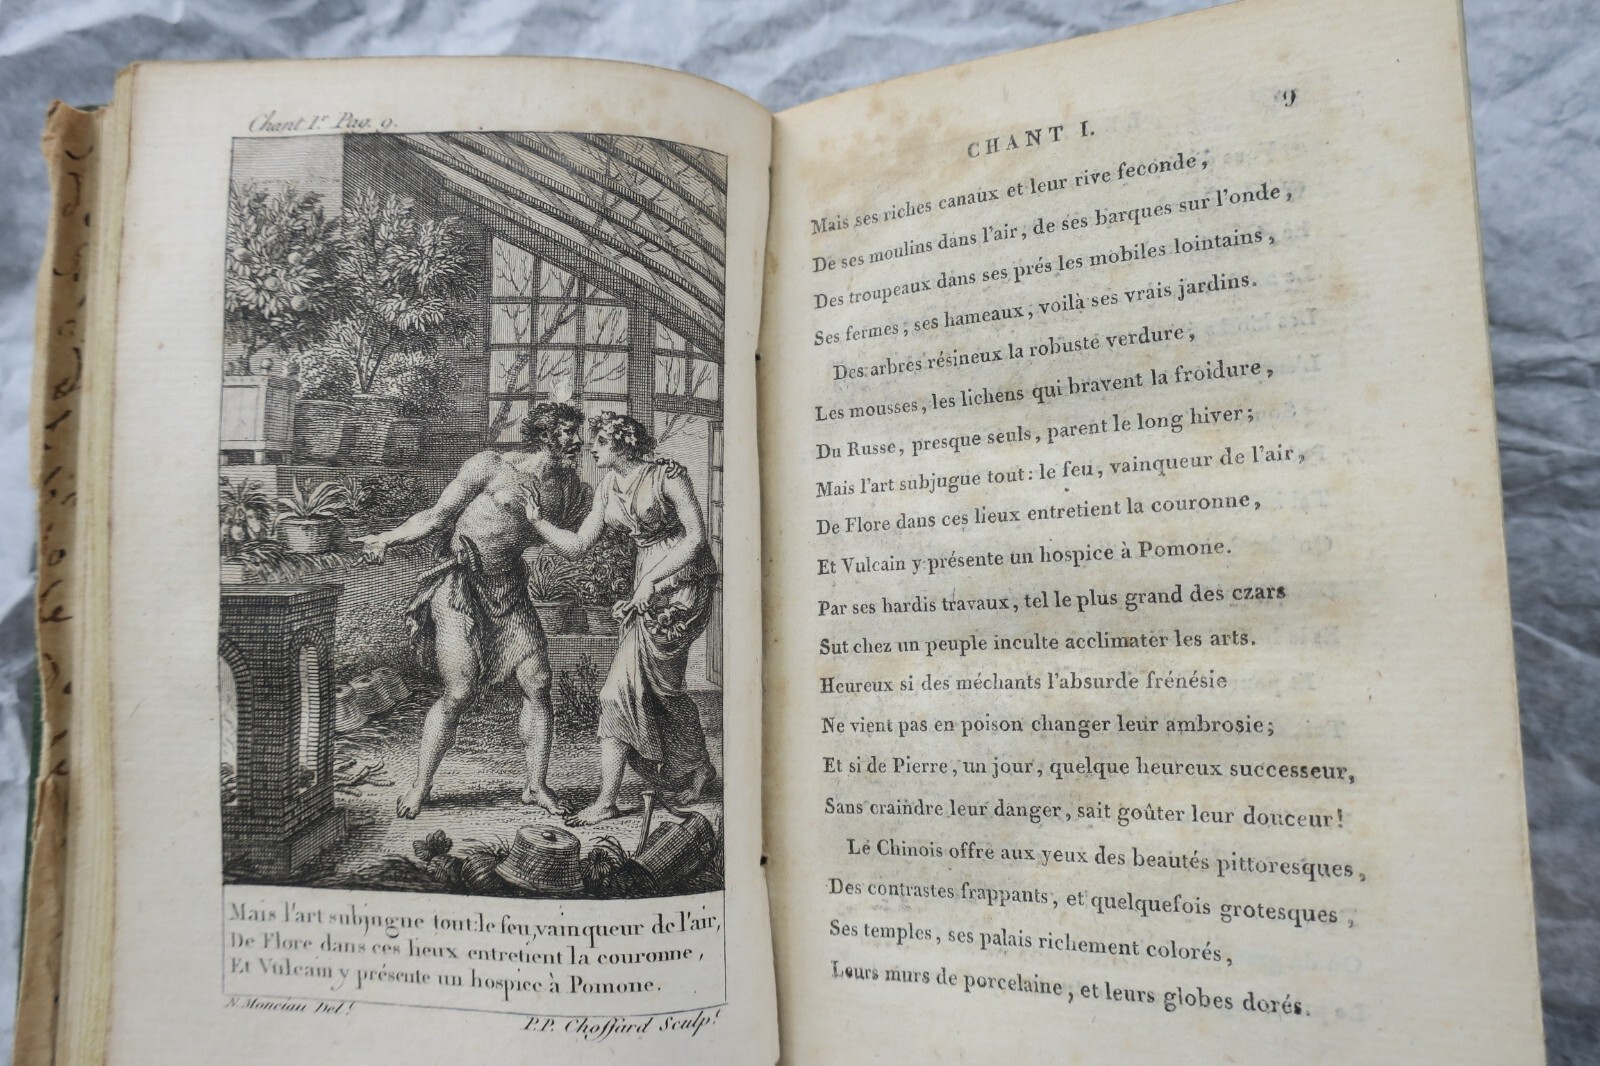 Chant I.r Pag. 9.
Mais l'art subjugue tout: le feu, vainqueur de l'air,
De Flore dans ces lieux entretient la couronne,
Et Vulcain y présente un hospice à Pomone.
N. Monciau Del.t
P.P. Choffard Sculp.t
9
CHANT I.
Mais ses riches canaux et leur rive feconde,
De ses moulins dans l'air, de ses barques sur l'onde,
Des troupeaux dans ses prés les mobiles lointains,
Ses fermes, ses hameaux, voilà ses vrais jardins.
Des arbres résineux la robuste verdure,
Les mousses, les lichens qui bravent la froidure,
Du Russe, presque seuls, parent le long hiver;
Mais l'art subjugue tout: le feu, vainqueur de l'air,
De Flore dans ces lieux entretient la couronne,
Et Vulcain y présente un hospice à Pomone.
Par ses hardis travaux, tel le plus grand des czars
Sut chez un peuple inculte acclimater les arts.
Heureux si des méchants l'absurde frénésie
Ne vient pas en poison changer leur ambrosie;
Et si de Pierre, un jour, quelque heureux successeur,
Sans craindre leur danger, sait goûter leur douceur!
Le Chinois offre aux yeux des beautés pittoresques,
Des contrastes frappants, et quelquefois grotesques,
Ses temples, ses palais richement colorés,
Leurs murs de porcelaine, et leurs globes dorés.